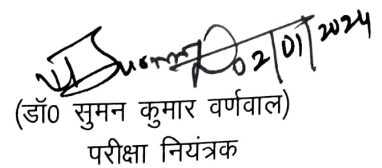 02/01/2024
(डॉ0 सुमन कुमार वर्णवाल)
परीक्षा नियंत्रक